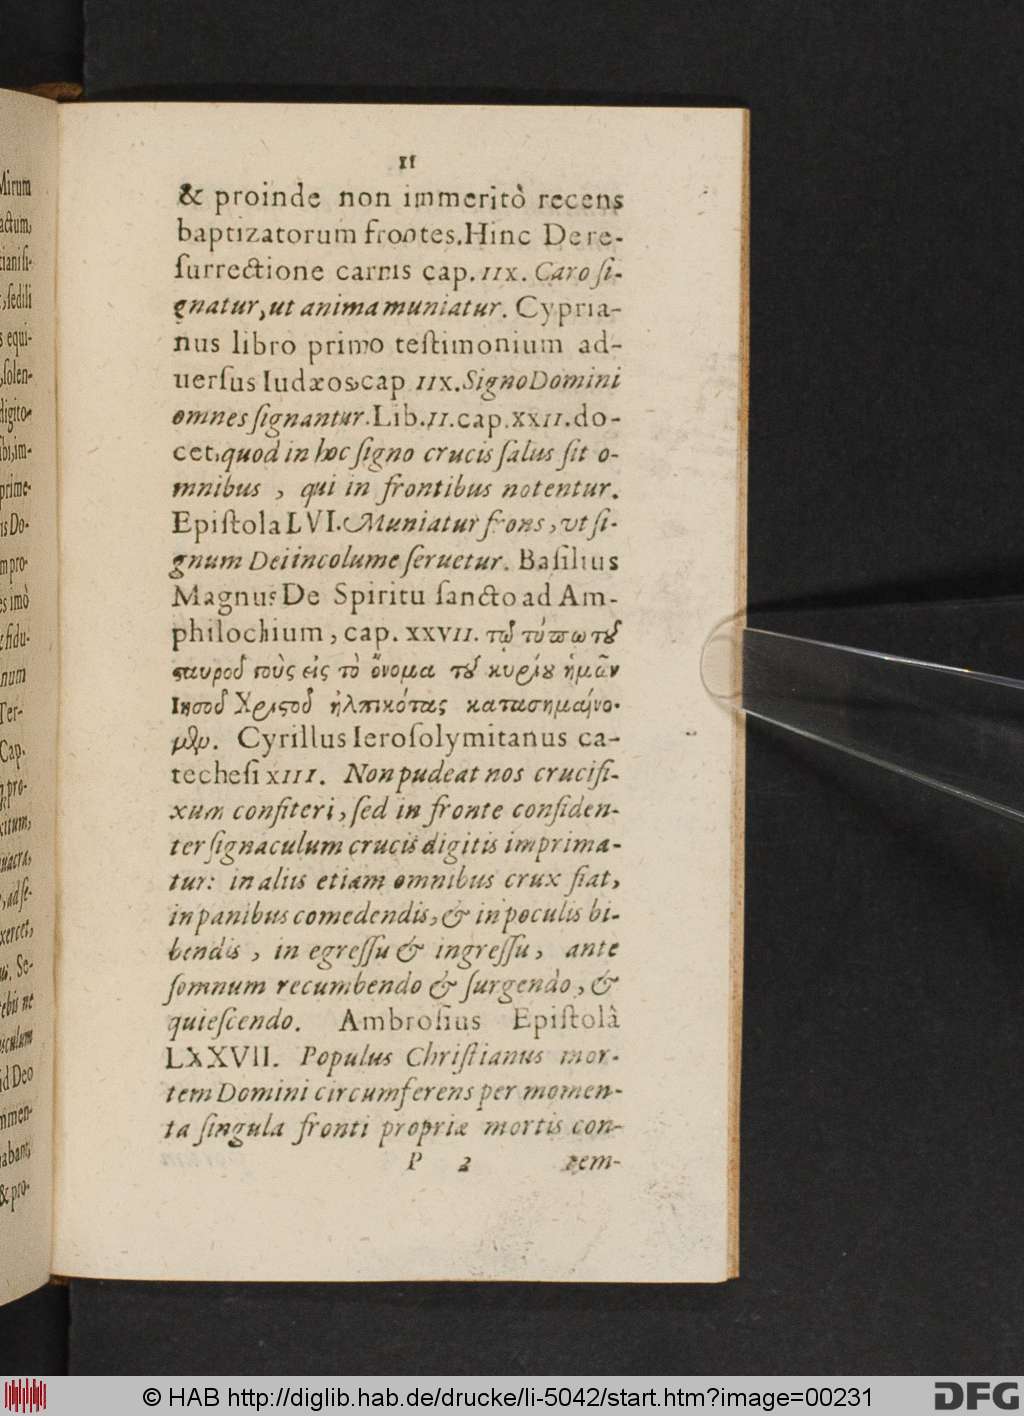 11
& proinde non immeritò recens
baptizatorum frontes. Hinc De re-
ſurrectione carnis cap. IIX. Caro ſi-
gnatur, ut anima muniatur. Cypria-
nus libro primo teſtimonium ad-
uerſus Iudæos, cap IIX. Signo Domini
omnes ſignantur. Lib. II. cap. XXII. do-
cet, quod in hoc ſigno crucis ſalus ſit o-
mnibus, qui in frontibus notentur.
Epiſtola LVI. Muniatur frons, vt ſi-
gnum Dei incolume ſeruetur. Baſilius
Magnus De Spiritu ſancto ad Am-
philochium, cap. XXVII. τῷ τύπῳ τοῦ
σταυροῦ τοὺς εἰς τὸ ὄνομα τοῦ κυρίου ἡμῶν
Ιησοῦ Χριστοῦ ἠλπικότας κατασημαίνε-
σθαι. Cyrillus Ieroſolymitanus ca-
techeſi XIII. Non pudeat nos crucifi-
xum confiteri, ſed in fronte confiden-
ter ſignaculum crucis digitis imprima-
tur: in aliis etiam omnibus crux fiat,
in panibus comedendis, & in poculis bi-
bendis, in egreſſu & ingreſſu, ante
ſomnum recumbendo & ſurgendo, &
quieſcendo. Ambroſius Epiſtolâ
LXXVII. Populus Chriſtianus mor-
tem Domini circumferens per momen-
ta ſingula fronti propriæ mortis con-
P 2 tem-
Mirum
actum,
tiani ſi-
, ſed ili
s equi-
, ſolen-
digito-
ibi, im-
prime-
is Do-
m pro-
es imò
fidu-
num
Ter-
Cap.
pro-
xitum,
, ad ſe-
xercet,
Se-
ebis ne
uſculum
id Deo
mmen-
abant,
& pro-
© HAB http://diglib.hab.de/drucke/li-5042/start.htm?image=00231
DFG